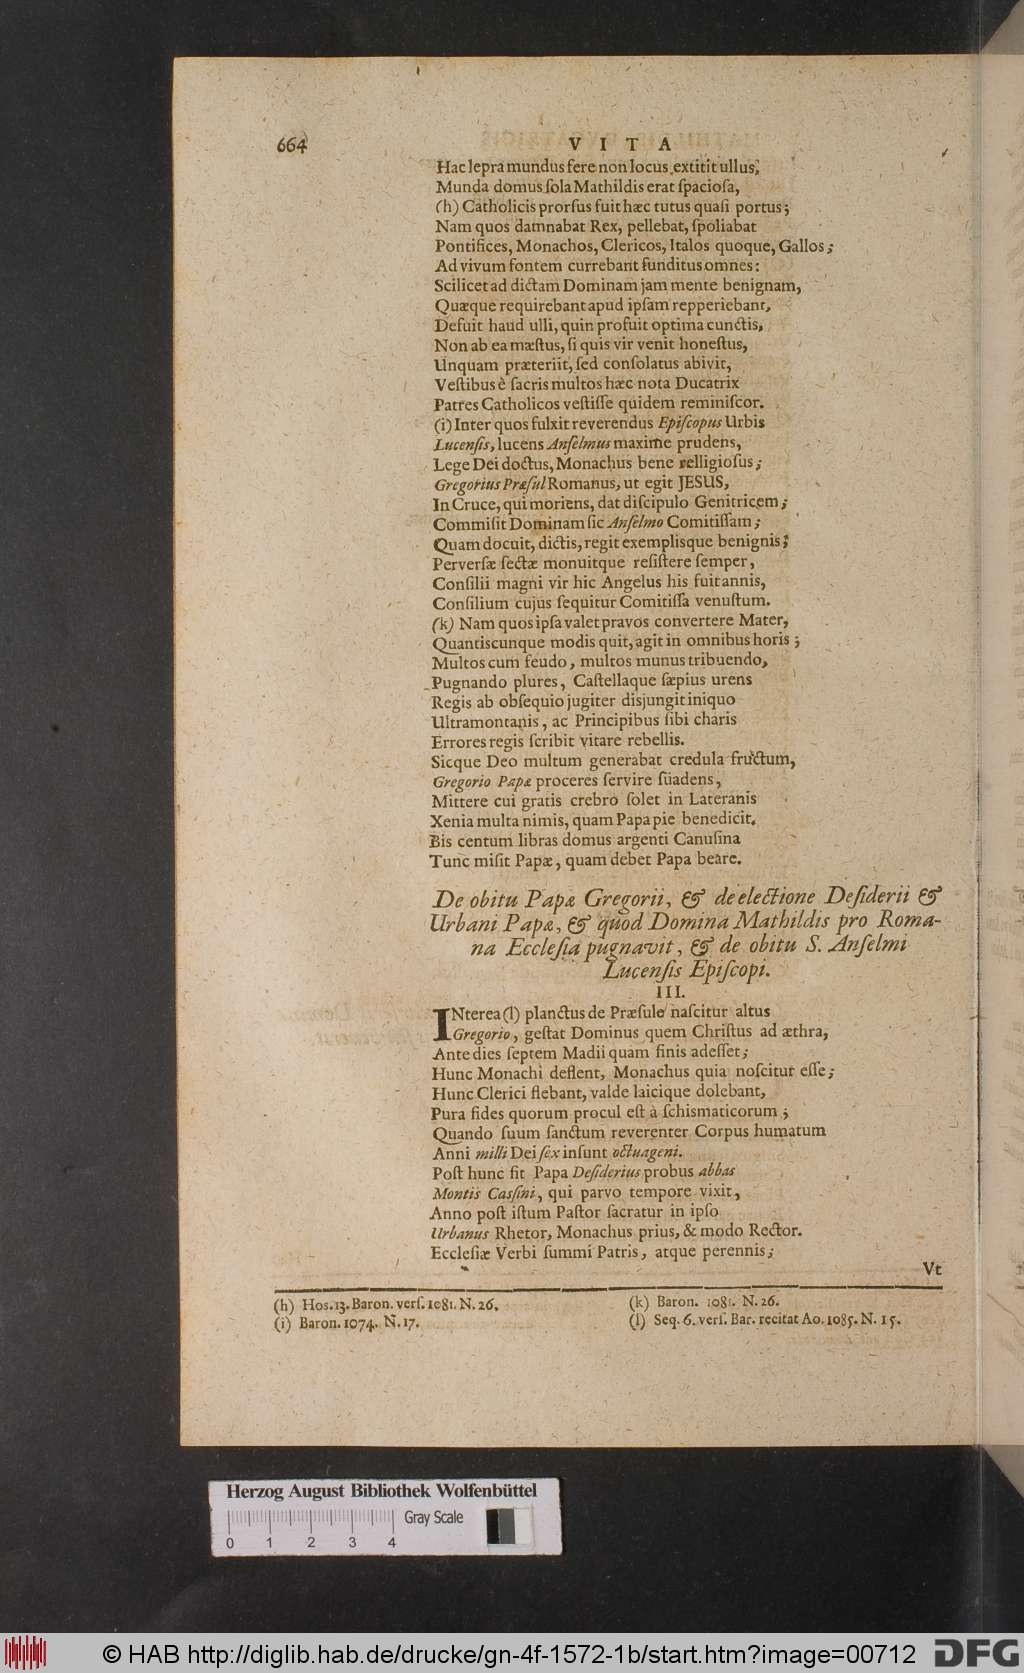 664 VITA
Hac lepra mundus fere non locus extitit ullus;
Munda domus ſola Mathildis erat ſpacioſa,
(h) Catholicis prorſus fuit hæc tutus quaſi portus;
Nam quos damnabat Rex, pellebat, ſpoliabat
Pontifices, Monachos, Clericos, Italos quoque, Gallos;
Ad vivum fontem currebant funditus omnes:
Scilicet ad dictam Dominam jam mente benignam,
Quæque requirebant apud ipſam repperiebant,
Defuit haud ulli, quin profuit optima cunctis,
Non ab ea mæſtus, ſi quis vir venit honeſtus,
Unquam præteriit, ſed conſolatus abivit,
Veſtibus è ſacris multos hæc nota Ducatrix
Patres Catholicos veſtiſſe quidem reminiſcor.
(i) Inter quos fulxit reverendus Epiſcopus Urbis
Lucenſis, lucens Anſelmus maxime prudens,
Lege Dei doctus, Monachus bene relligioſus;
Gregorius Præſul Romanus, ut egit JESUS,
In Cruce, qui moriens, dat diſcipulo Genitricem;
Commiſit Dominam ſic Anſelmo Comitiſſam;
Quam docuit, dictis, regit exemplisque benignis;
Perverſæ ſectæ monuitque reſiſtere ſemper,
Conſilii magni vir hic Angelus his fuit annis,
Conſilium cujus ſequitur Comitiſſa venuſtum.
(k) Nam quos ipſa valet pravos convertere Mater,
Quantiscunque modis quit, agit in omnibus horis;
Multos cum feudo, multos munus tribuendo,
Pugnando plures, Caſtellaque ſæpius urens
Regis ab obſequio jugiter disjungit iniquo
Ultramontanis, ac Principibus ſibi charis
Errores regis ſcribit vitare rebellis.
Sicque Deo multum generabat credula fructum,
Gregorio Papæ proceres ſervire ſüadens,
Mittere cui gratis crebro ſolet in Lateranis
Xenia multa nimis, quam Papa pie benedicit.
Bis centum libras domus argenti Canuſina
Tunc miſit Papæ, quam debet Papa beare.
De obitu Papæ Gregorii, & de electione Deſiderii &
Urbani Papæ, & quod Domina Mathildis pro Roma-
na Eccleſia pugnavit, & de obitu S. Anſelmi
Lucenſis Epiſcopi.
III.
INterea (l) planctus de Præſule naſcitur altus
Gregorio, geſtat Dominus quem Chriſtus ad æthra,
Ante dies ſeptem Madii quam finis adeſſet;
Hunc Monachi deflent, Monachus quia noſcitur eſſe;
Hunc Clerici flebant, valde laicique dolebant,
Pura fides quorum procul eſt à ſchismaticorum;
Quando ſuum ſanctum reverenter Corpus humatum
Anni milli Dei ſex inſunt octuageni.
Poſt hunc fit Papa Deſiderius probus abbas
Montis Casſini, qui parvo tempore vixit,
Anno poſt iſtum Paſtor ſacratur in ipſo
Urbanus Rhetor, Monachus prius, & modo Rector.
Eccleſiæ Verbi ſummi Patris, atque perennis;
Vt
(h) Hos. 13. Baron. verſ. 1081. N. 26.
(i) Baron. 1074. N. 17.
(k) Baron. 1081. N. 26.
(l) Seq. 6. verſ. Bar. recitat Ao. 1085. N. 15.
Herzog August Bibliothek Wolfenbüttel
Gray Scale
0 1 2 3 4
© HAB http://diglib.hab.de/drucke/gn-4f-1572-1b/start.htm?image=00712 DFG